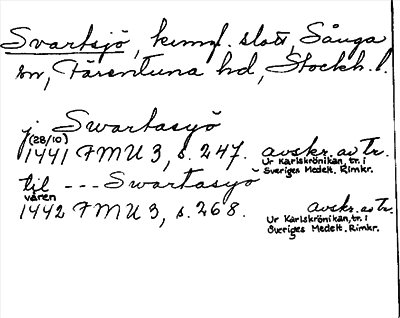 Svartsjö, kungl. slott, Sånga
sn, Färentuna hd, Stockh. l.
j Swartasyö
(28/10)
1441 FMU 3, s. 247. avskr. av tr.
Ur Karlskrönikan, tr. i
Sveriges Medelt. Rimkr.
til --- Swartasyö
våren
1442 FMU 3, s. 268. avskr. av tr.
Ur Karlskrönikan, tr. i
Sveriges Medelt. Rimkr.